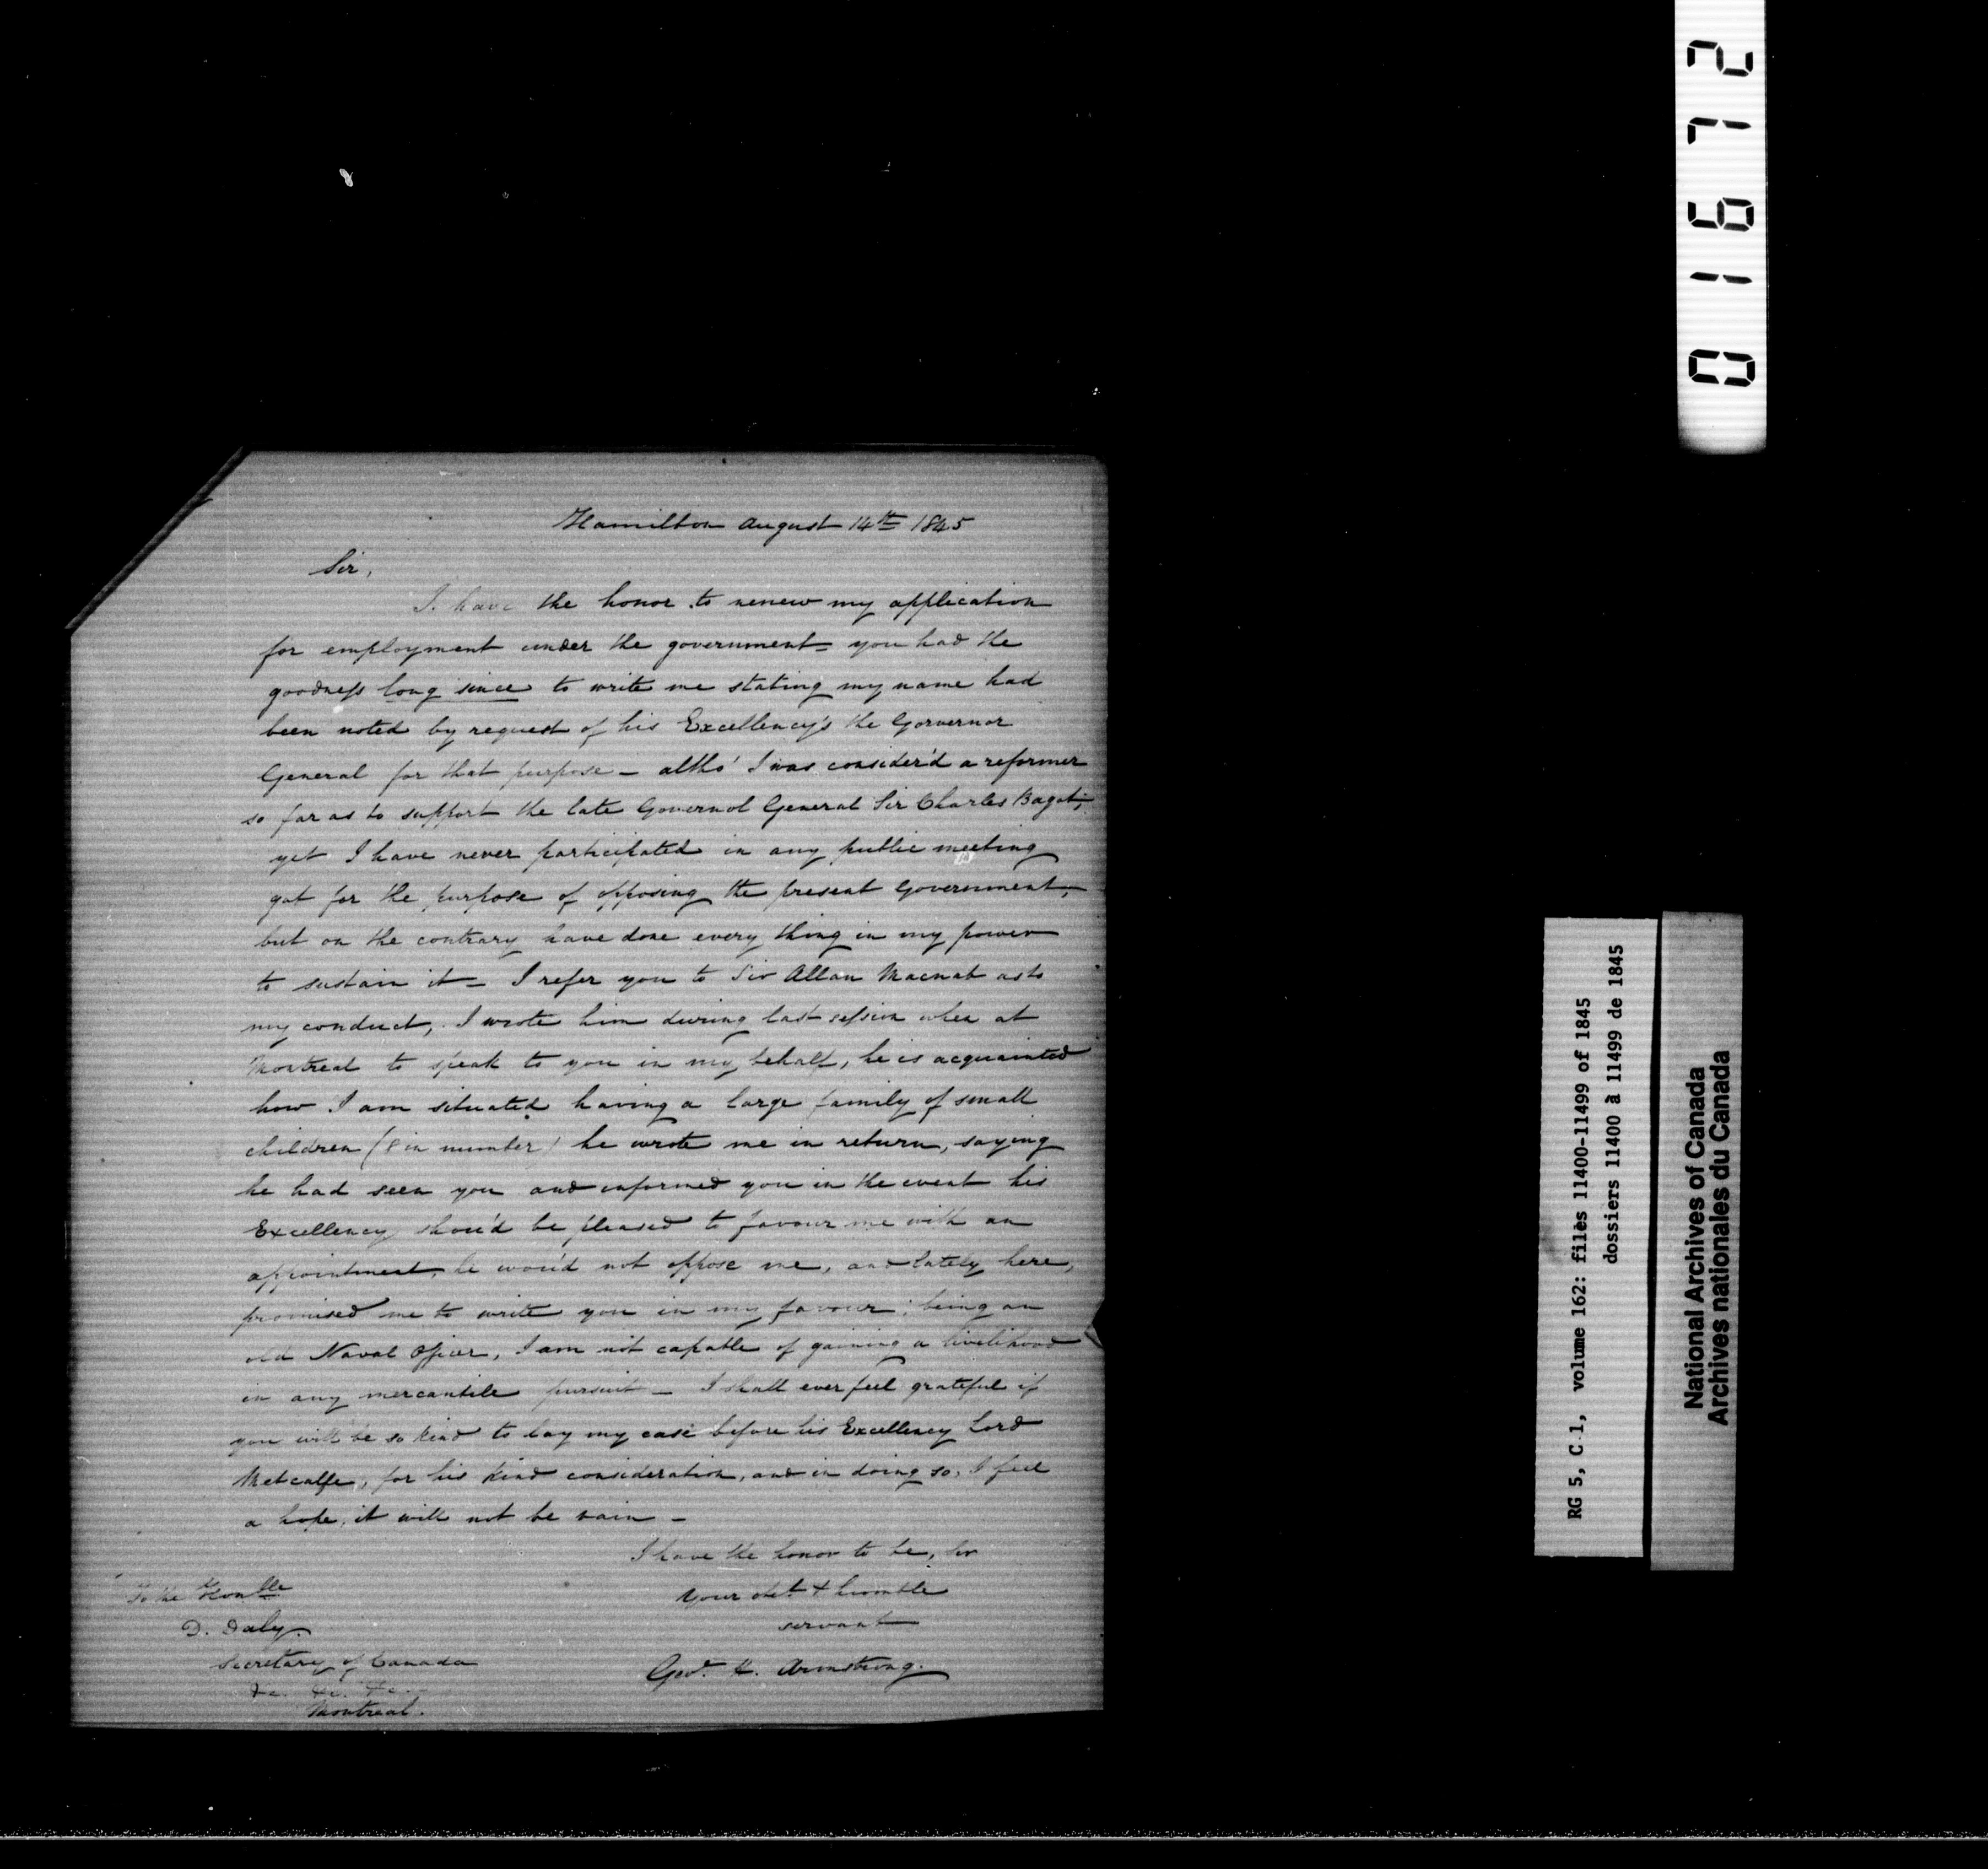 Hamilton August 14th 1845
Sir,
I have the honor to renew my application
for employment under the government = you had the
goodness long since to write me stating my name had
been noted by request of his Excellency's the Gorvernor
General for that purpose – altho' I was consider'd a reformer
so far as to support the late Governol General Sir Charles Bagot;
yet I have never participated in any public meeting
got for the purpose of opposing the present Government,
but on the contrary have done every thing in my power
to sustain it – I refer you to Sir Allan Macnab as to
my conduct, I wrote him during last session when at
Montreal to speak to you in my behalf, he is acquainted
how I am situated having a large family of small
children (8 in number) he wrote me in return, saying
he had seen you and informed you in the event his
Excellency shou'd be pleased to favour me with an
appointment, he wou'd not oppose me, and lately here,
promised me to write you in my favour; being an
old Naval Officer, I am not capable of gaining a livelihood
in any mercantile pursuit – I shall ever feel grateful if
you will be so kind to lay my case before his Excellency Lord
Metcalfe, for his kind consideration, and in doing so, I feel
a hope, it will not be vain –
I have the honor to be, Sir
your obt. & humble
servant
Geo. H. Armstrong.
To the Honble
D. Daly.
Secretary of Canada
&c. &c. &c.
Montreal.
01672
RG 5, C 1, volume 162: files 11400-11499 of 1845
dossiers 11400 à 11499 de 1845
National Archives of Canada
Archives nationales du Canada